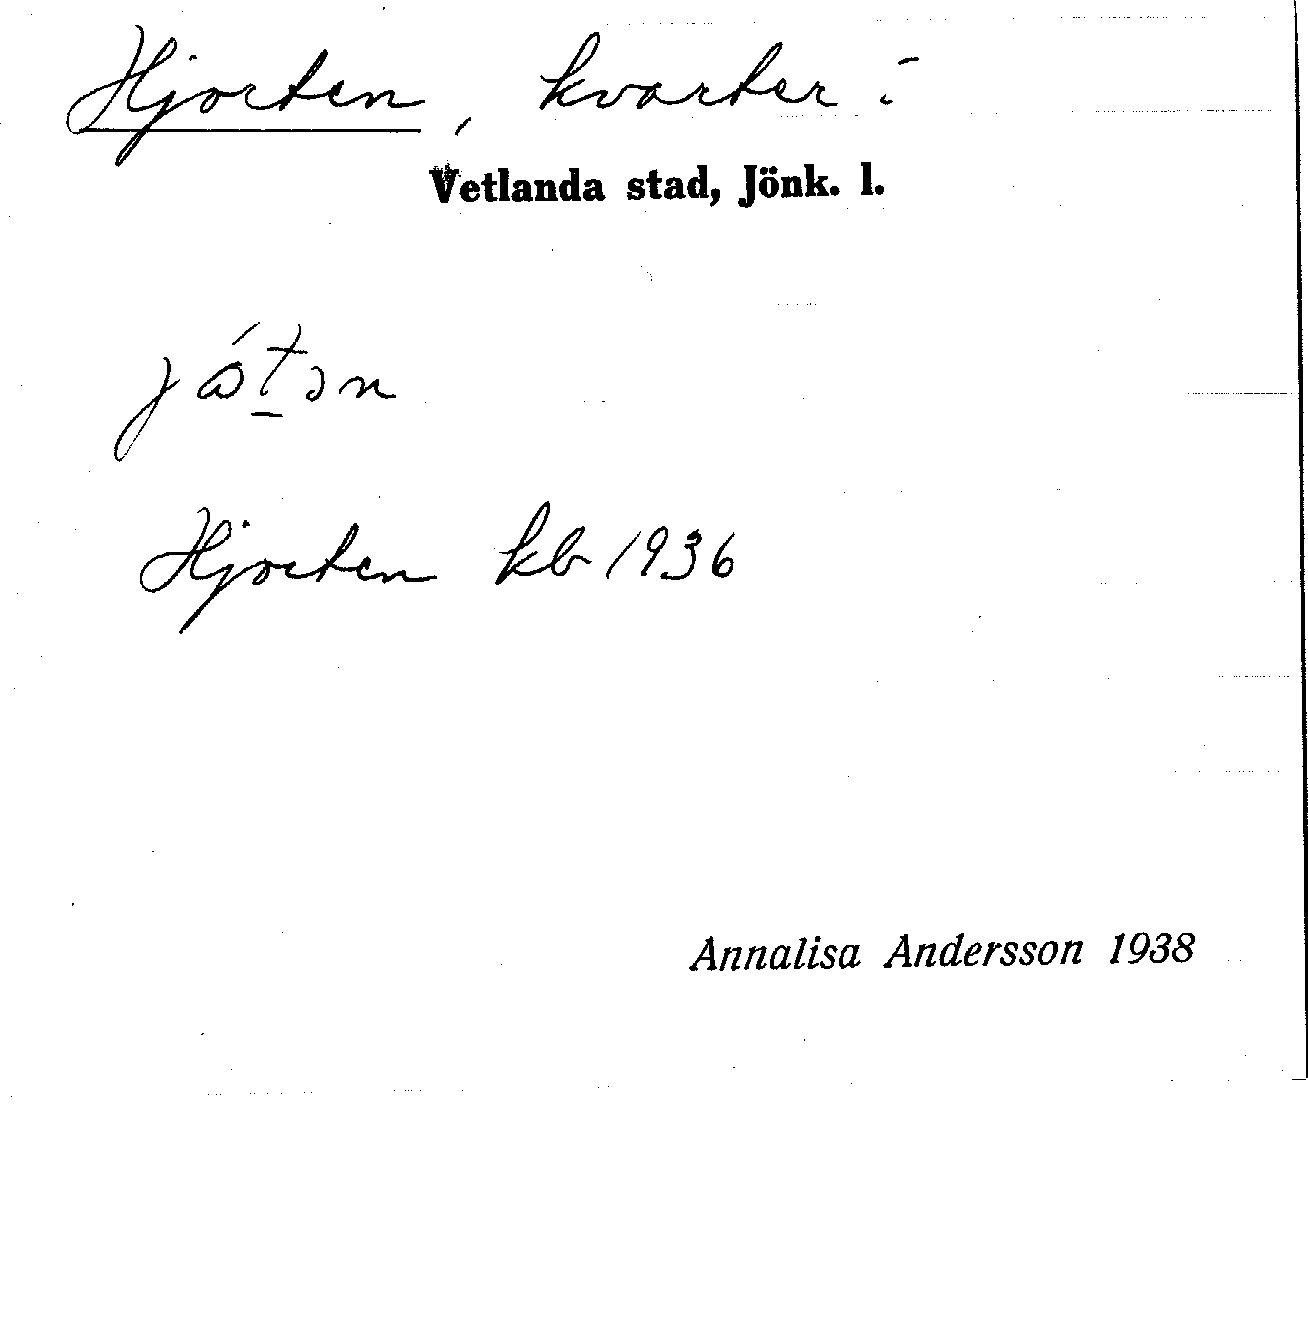 Hjorten, kvarter i
Vetlanda stad, Jönk. l.
Hjorten kb 1936
Annalisa Andersson 1938